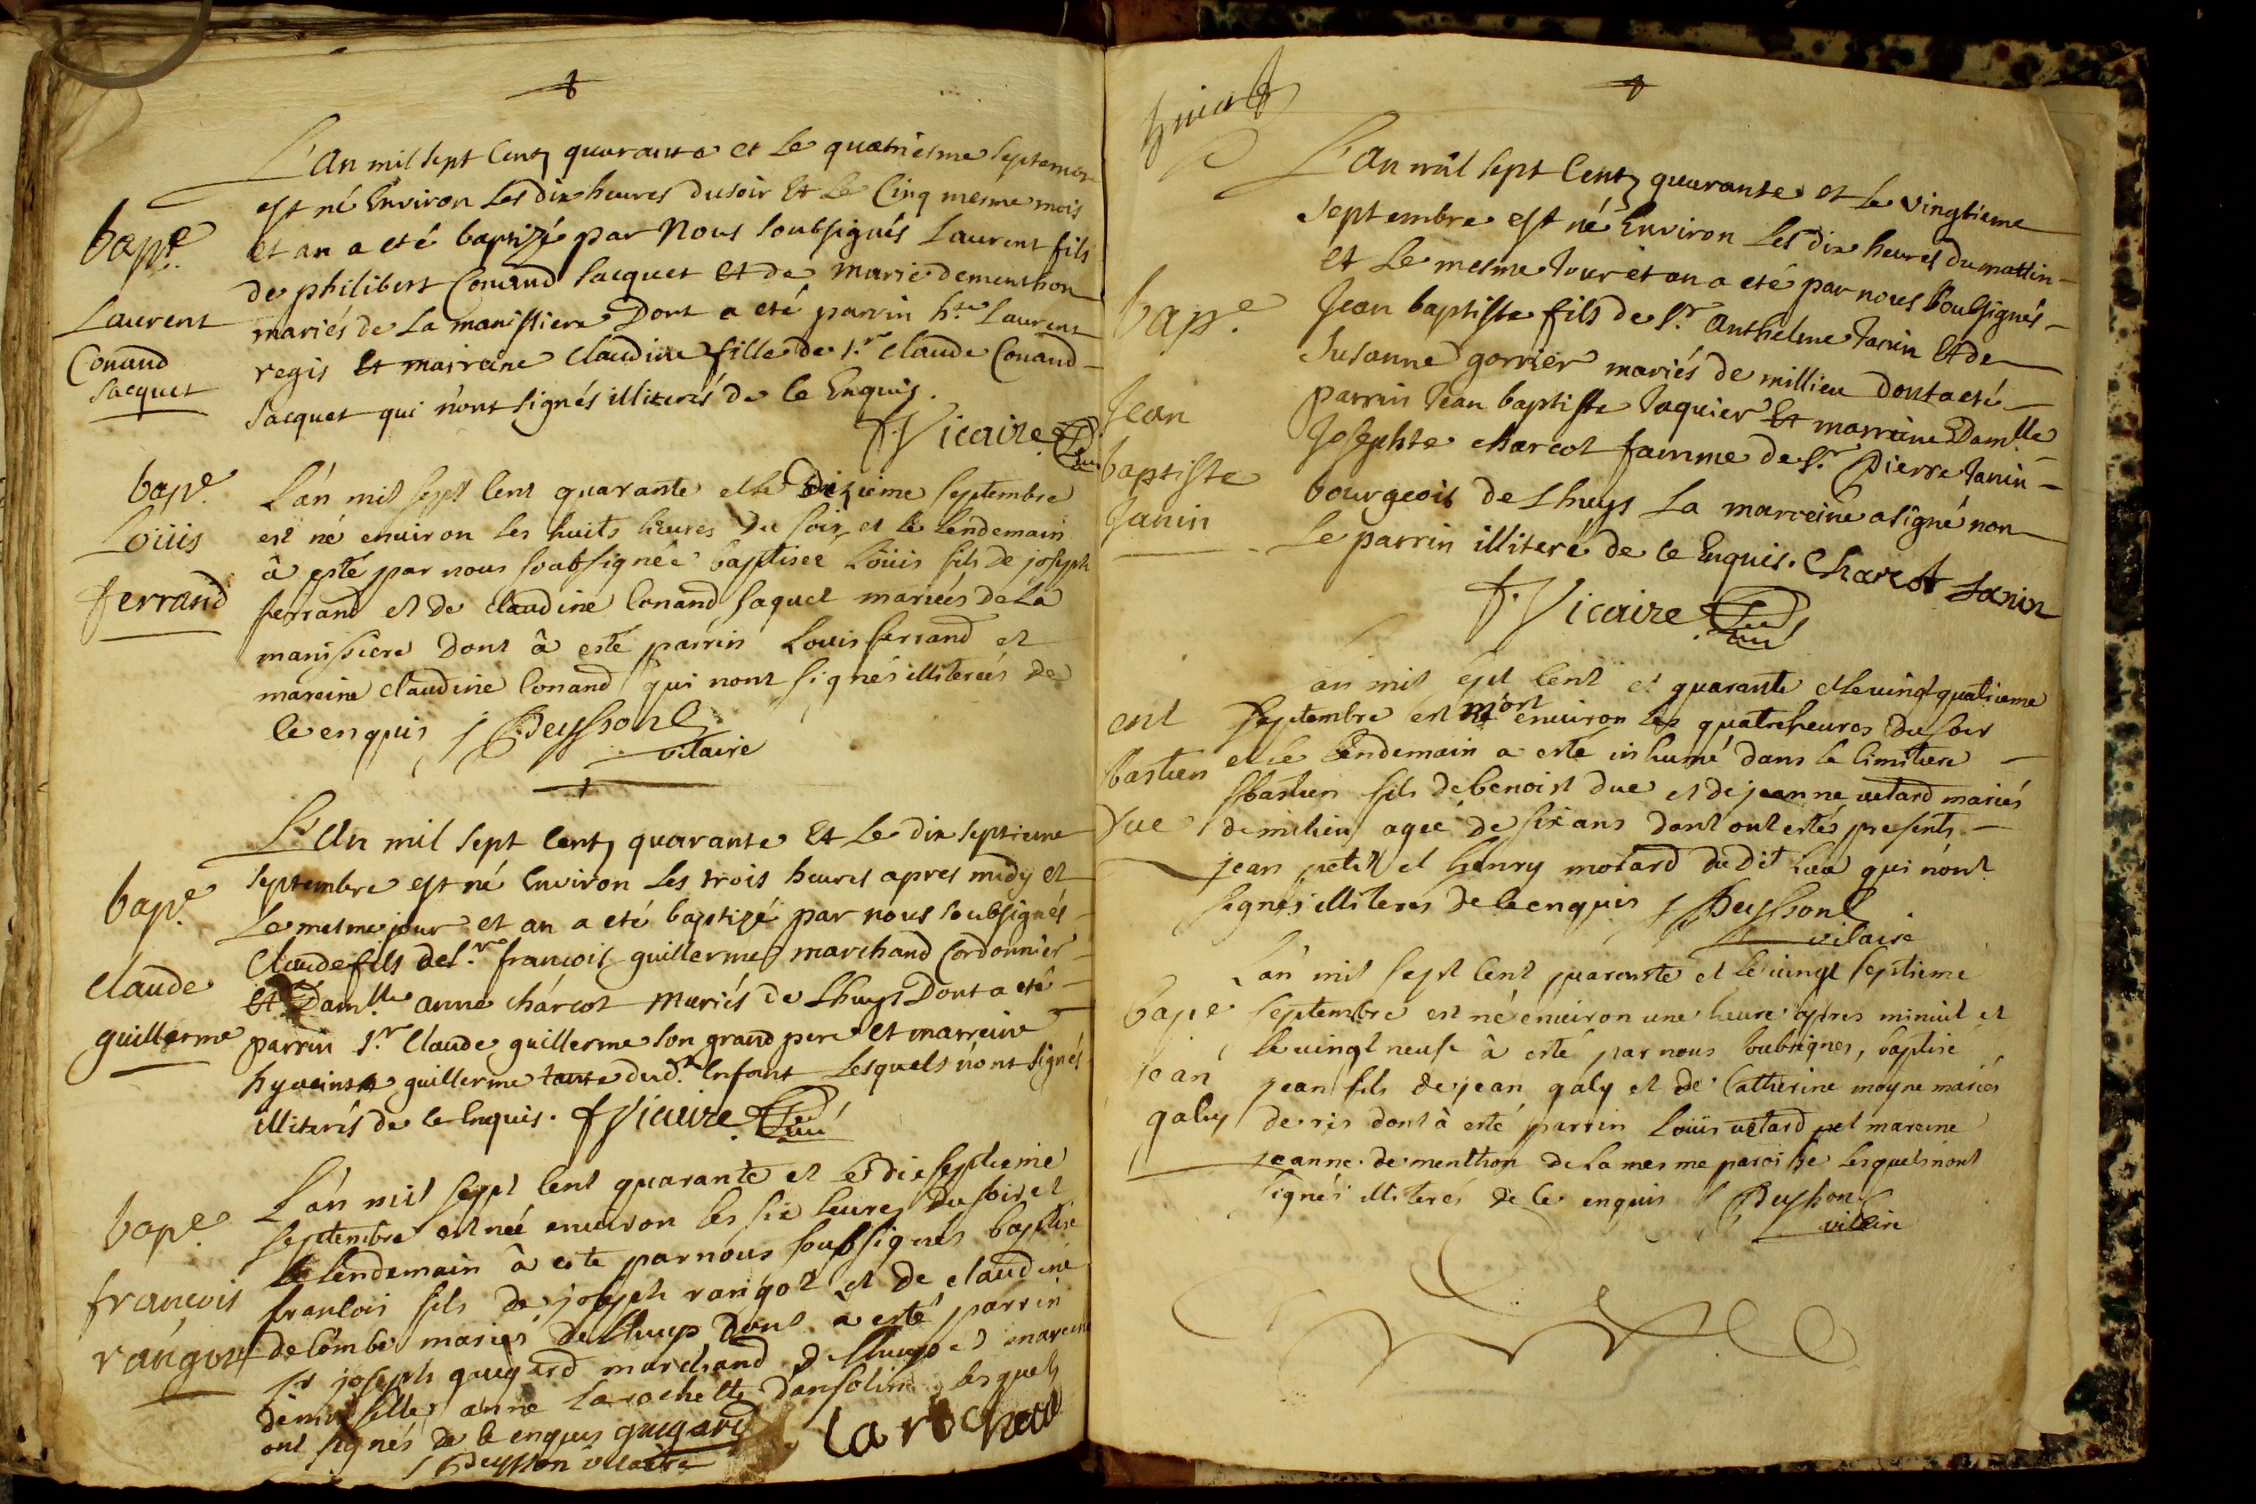 L'an mil sept Cent quarante et Le quatriesme septembre
est né Environ Les dix heures du soir Et Le Cinq mesme mois
et an a eté baptizé par Nous soubsignés Laurent fils
de philibert Conand Jacquet et de marie dementhon
mariés de La manissiere Dont a eté parrin h.te Laurent
regis Et marreine Claudine fille de s.r Claude Conand
Jacquet qui n'ont signés illiterés de Ce Enquis.
Vicaire
bap.e
Laurent
Conand
Jacquet
L'an mil sept Cent quarante et le dixieme septembre
est né environ les huits heures du soir et le Lendemain
â esté par nous soubsignéé baptiséé Loüis fils de joseph
ferrand et de claudine Conand Jaquet mariéés de La
manissiere dont â esté parrin Louis ferrand et
mareine claudine Conand qui nont signés illiterés de
Ce enquis Peysson
vicaire
bap.e
Loüis
ferrand
L'an mil sept Cent quarante Et Le dix septieme
septembre est né Environ Les trois heures apres midy et
Le mesme jour et an a eté baptizé par nous soubsignés
Claude fils de s.r francois guillerme marchand Cordonnier
Et Dam.lle anne charcot mariés de Lhuys Dont a eté
parrin s.r Claude guillerme son grand pere et marreine
hyacinte guillerme tante dud. Enfant Lesquels n'ont signés
illiterés de Ce Enquis. Vicaire
bap.e
Claude
guillerme
L'an mil sept Cent quarante et le dix septieme
septembre est néé environ les six heures du soir et
le Lendemain â este par nous soubsignés baptisé
francois fils de joseph rangot et de claudine
delombe mariés de Lhuys dont a esté parrin
sr joseph gaugard marchand de Lhuys et mareine
demoiselle anne Larochette d'ansolin lesquels
ont signés de Ce enquis gaugard Larochette
Peysson vicaire
bap.e
francois
rangot
L'an mil sept Cent quarante et Le vingtieme
septembre est né Environ Les dix heures du mattin
et Le mesme Jour et an a eté par nous soubsignés
Jean baptiste fils de s.r Anthelme Janin Et de
Susanne gorrier mariés de millieu dont a eté
parrin Jean baptiste Jaquier Et marreine Dam.lle
Josephte charcot famme de s.r Pierre Janin
bourgeois de Lhuys La marreine a signé non
Le parrin illiteré de Ce Enquis. Charcot Janin
Vicaire
bap.e
Jean
baptiste
Janin
an mil sept Cent et quarante et le vingt quatrieme
septembre est mort environ les quatre heures du soir
et le Lendemain a esté inhumé dans le Cimitiere
sbastien fils de benoist due et de jeanne vetard mariés
de milieu agéé de six ans dont ont estés presents
jean petit et henry motard du dit Lieu qui n'ont
signés illiteres de Ce enquis Peysson
vicaire
ent
bastien
due
L'an mil sept Cent quarente et le vingt septieme
septembre est né environ une heure apres minuit et
le vingt neuf â esté par nous soubsignes, baptise
jean fils de jean galy et de Catherine moyne mariés
de ris dont à esté parrin Loüis vetard et mareine
jeanne dementhon de La mesme paroisse Lesquels nont
signés illiterés de Ce enquis Peysson
vicaire
bap.e
jean
galy